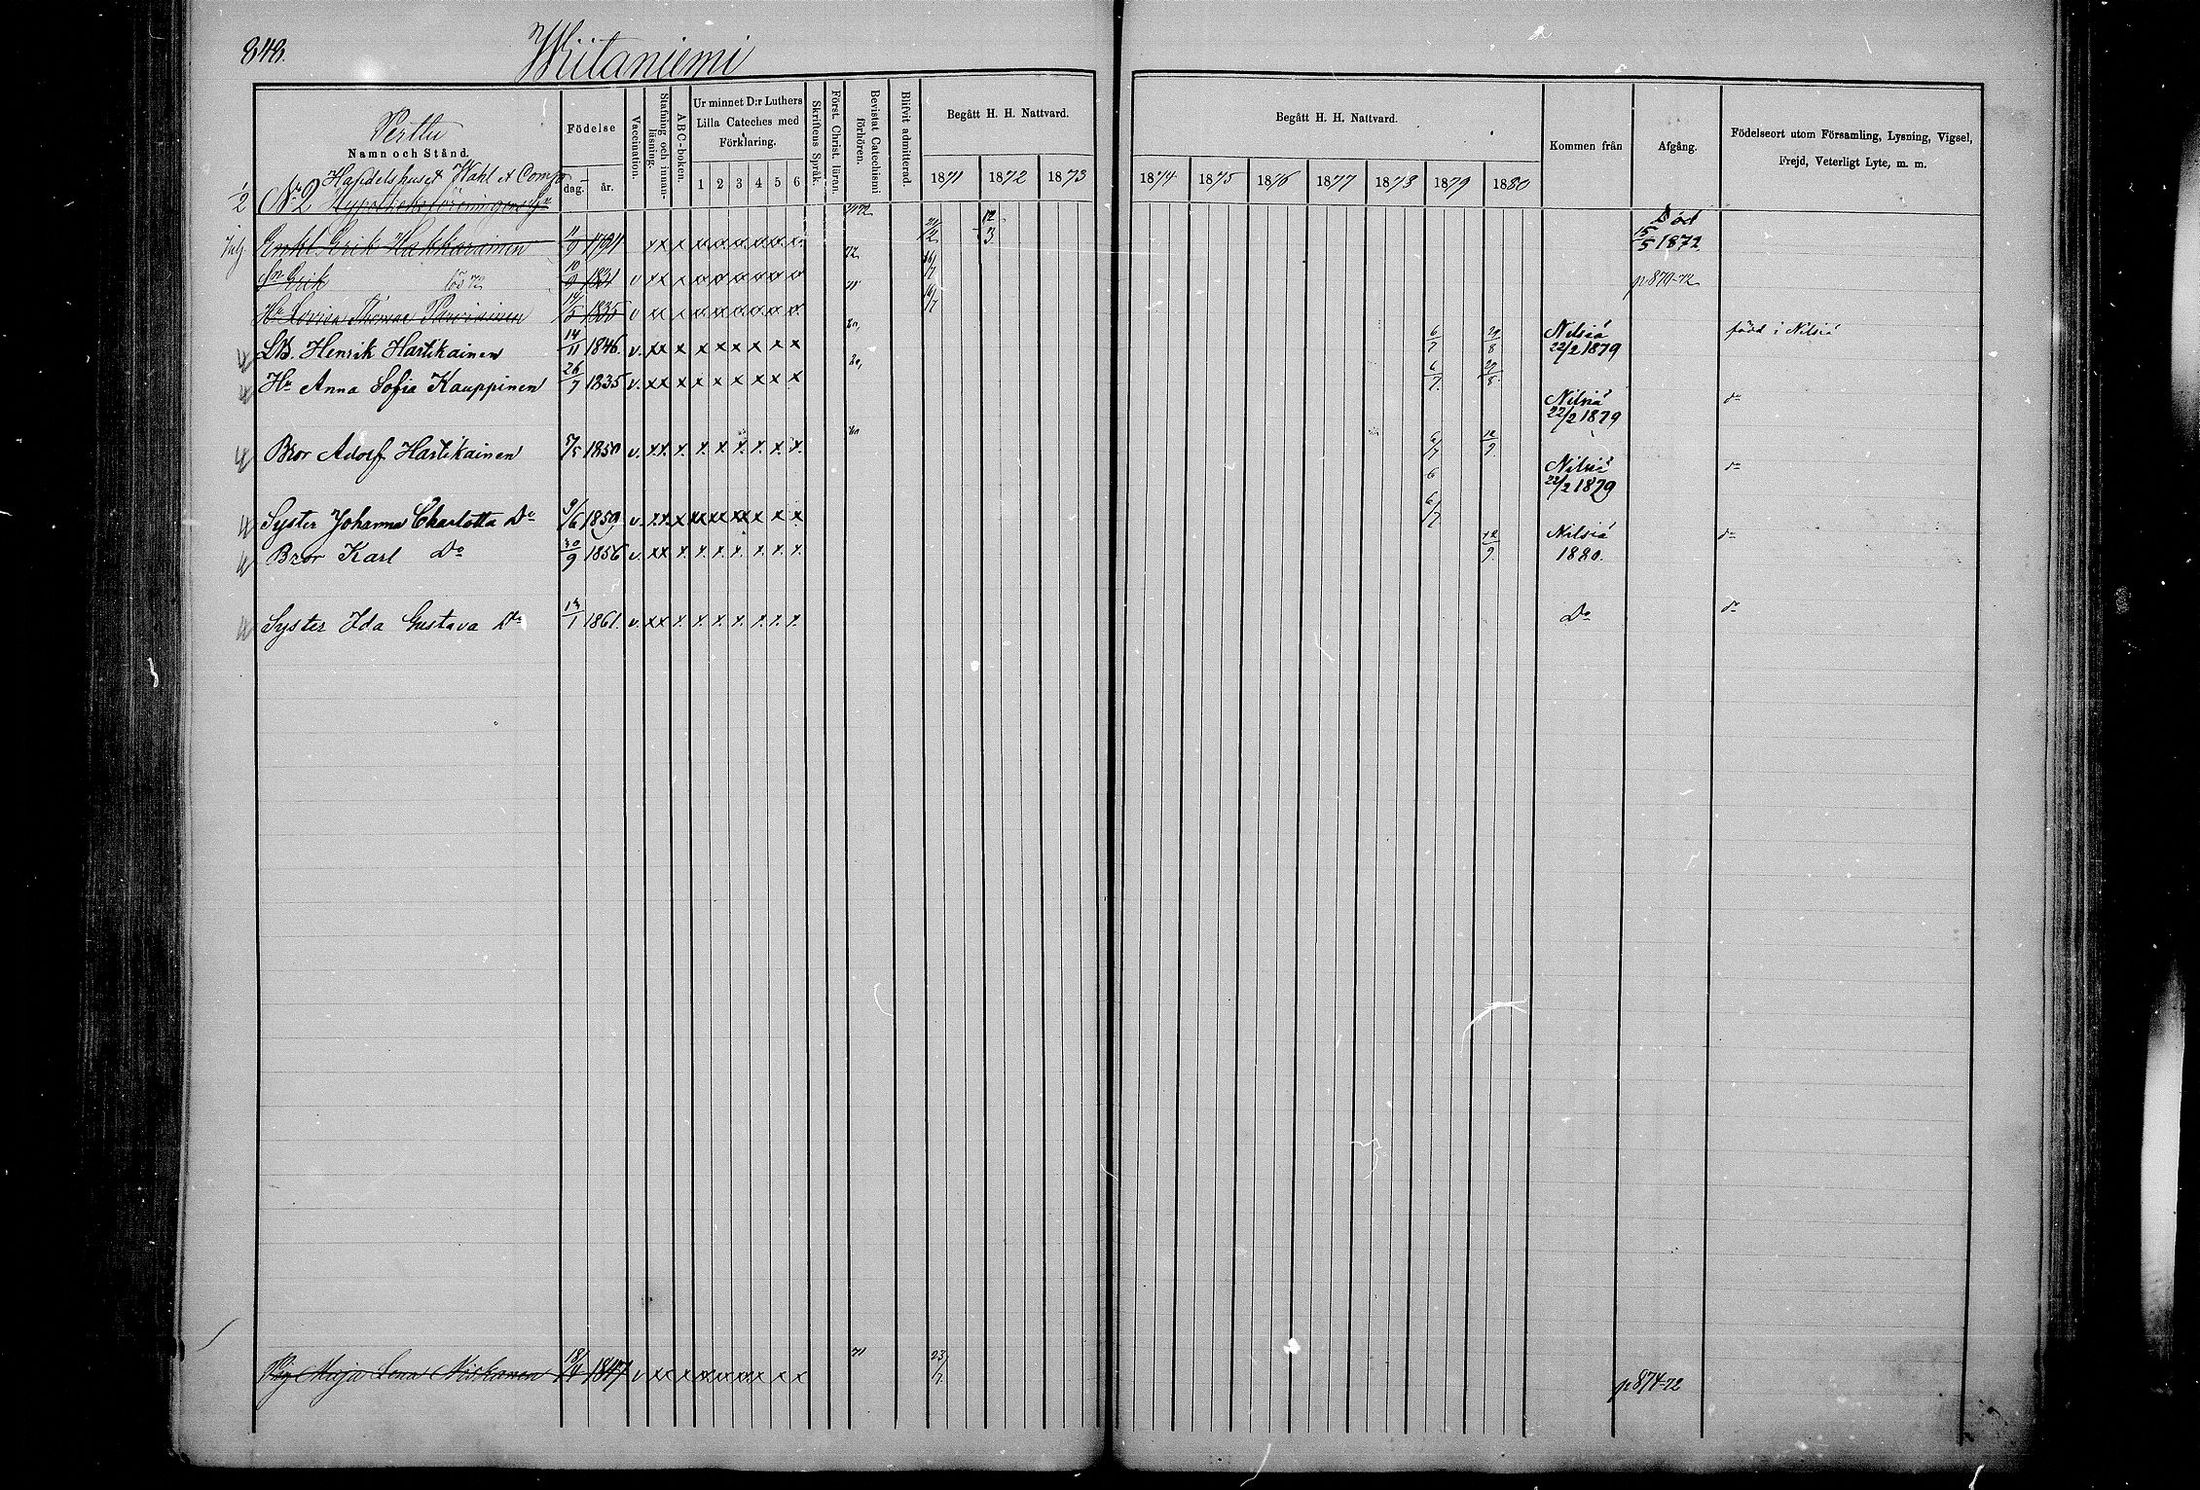 848.
Wiitaniemi
Perttu
Namn och Stånd.
Födelse
dag.
år.
Vaccination.
Stafning och innan-läsning.
ABC-boken.
Ur minnet D:r Luthers
Lilla Cateches med
Förklaring.
1 2 3 4 5 6
Skriftens Språk.
Förståt. Christ. läran.
Bevistat Catechismi förhören.
Blifvit admitterad.
Begått H. H. Nattvard.
1871 1872 1873
Begått H. H. Nattvard.
1874 1875 1876 1877 1878 1879 1880
Kommen från
Afgång.
Födelseort utom Församling, Lysning, Vigsel,
Frejd, Veterligt Lyte, m. m.
1/2 No 2 Handelshuset Wahl et Comp
Hypoteksföreningens
Erik Hakkarainen 11/9 v x x x 71 72 12/3 Död 15/5 1872
Sn Erik 10/9 1831 v x x x 72 16/7 p 879-72
Hu Lovisa 1835 v x x x 71 16/7
LB. Henrik Hartikainen 14/11 1846. v. x x x x x x x x x 80, 6/7 29/8 Nilsiä 22/2 1879 född i Nilsiä
Hu Anna Sofia Kauppinen 26/7 1835 v. x x x x x x x x x 80, 6/7 29/8 Nilsiä 22/2 1879 do
Bror Adolf Hartikainen 7/5 1850 v. x x x. x. x. x. x. x. x. 80 6/7 12/9 Nilsiä 22/2 1879 do
Syster Johanna Charlotta Do 9/6 1859 v. x x. x x x x x x x 6/7
Bror Karl Do 30/9 1856 v. x x x. x. x. x. x. x. x. 12/9. Nilsiä 1880. do
Syster Ida Gustava Do 13/1 1861. v. x x x. x. x. x. x. x. x. Do do
Pig Maja Lena Niskanen 18/4 1847 v x x x x x x x x x 71 23/7 p 874-72